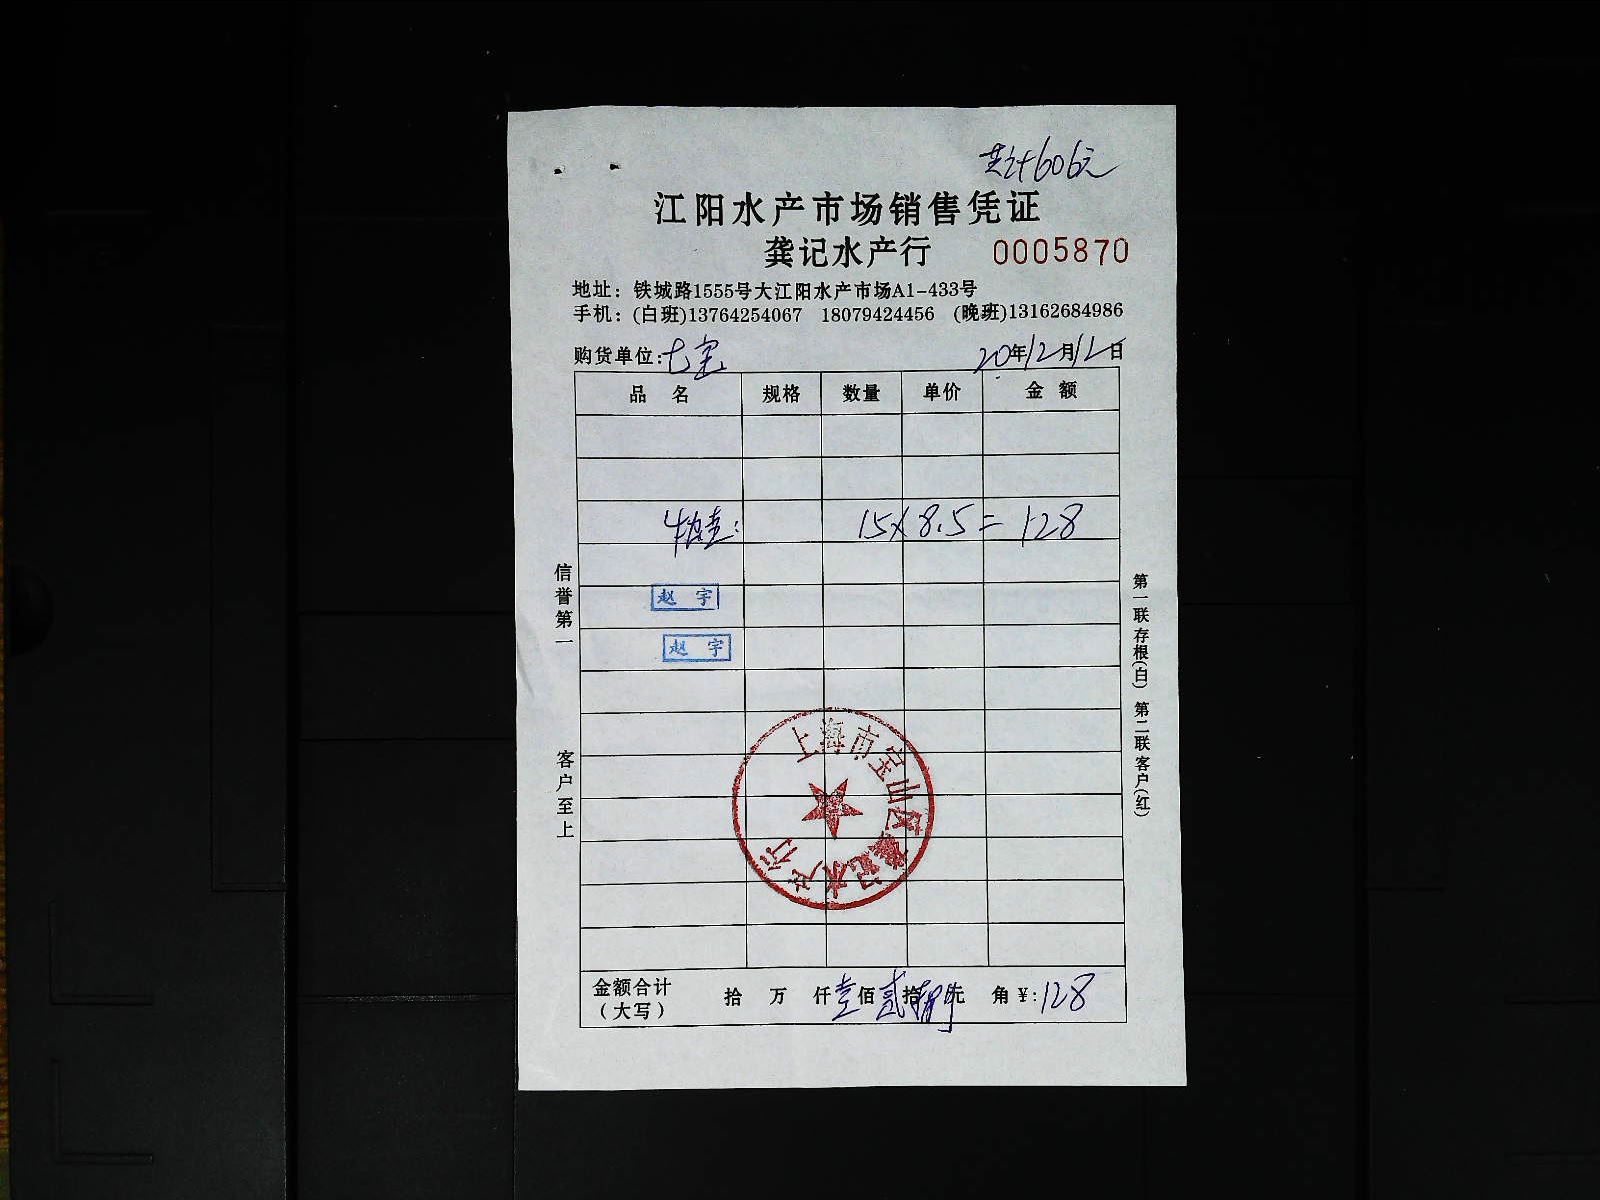 共计606元
江阳水产市场销售凭证
龚记水产行 0005870
地址：铁城路1555号大江阳水产市场A1-433号
手机：(白班)13764254067 18079424456 (晚班)13162684986
购货单位：七宝 20年12月12日
品 名 规格 数量 单价 金 额
牛蛙： 15×8.5= 128
赵 宇
赵 宇
信誉第一 客户至上
第一联存根(白) 第二联客户(红)
上海市宝山区龚记水产行
金额合计（大写） 拾 万 仟壹佰贰拾捌元 角￥:128